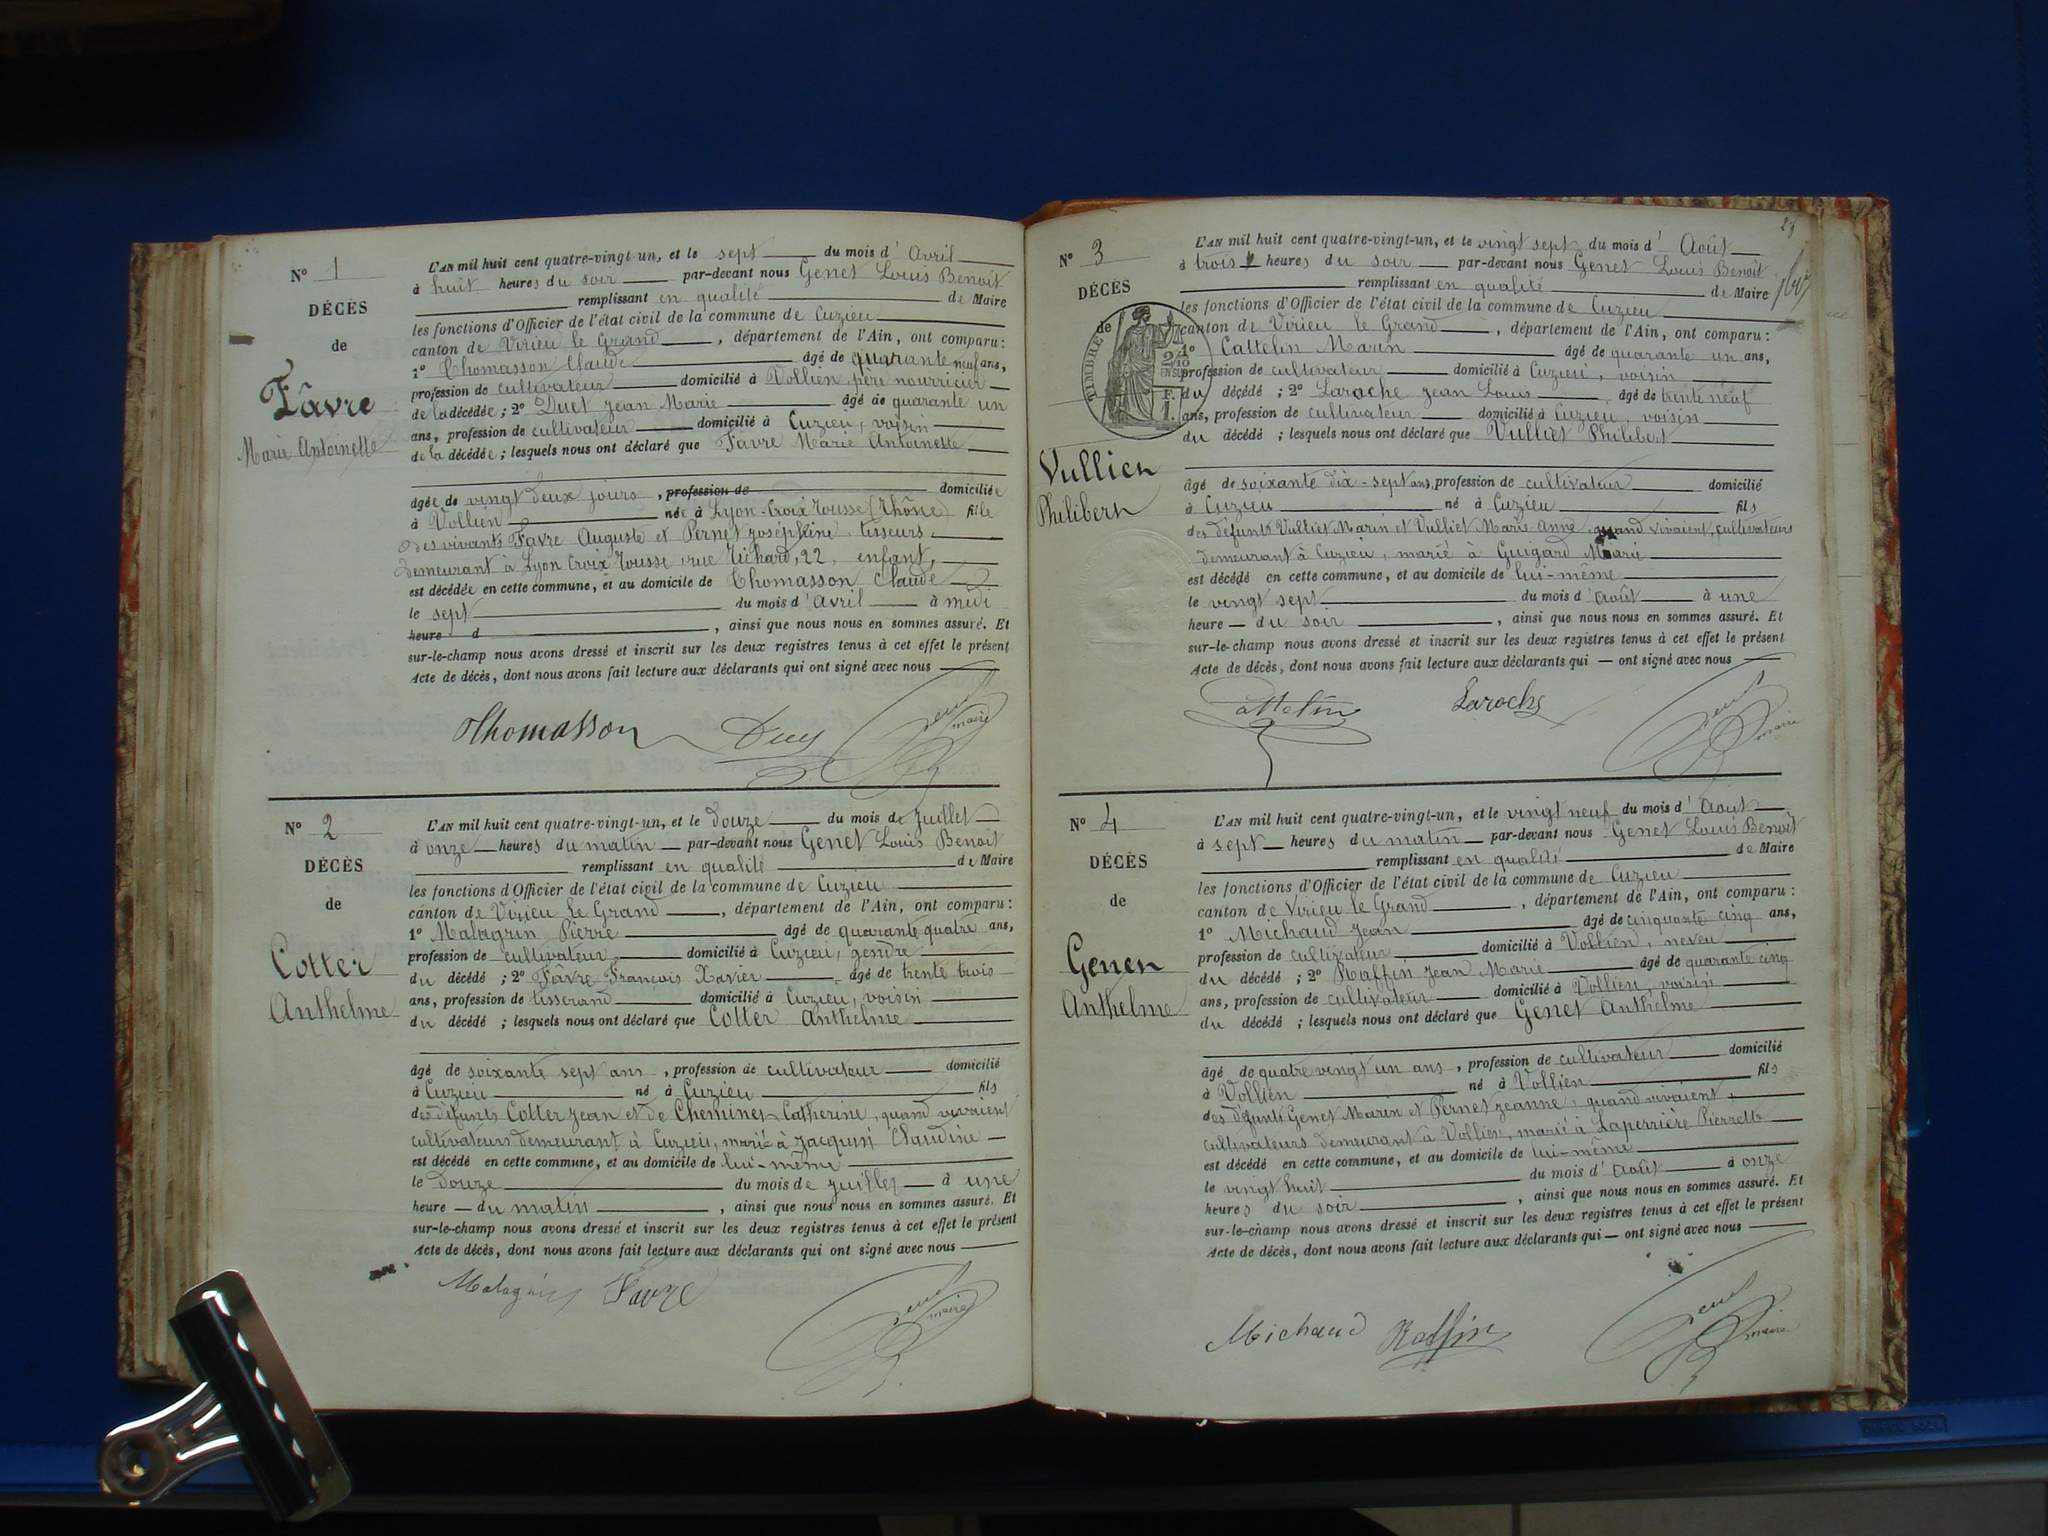 N° 1
DÉCÈS
de
Fâvre
Marie Antoinette
L'AN mil huit cent quatre-vingt-un, et le sept du mois d' Avril
à huit heures du soir par-devant nous Genet Louis Benoit
remplissant en qualité de Maire
les fonctions d'Officier de l'état civil de la commune de Cuzieu
canton de Virieu le Grand, département de l'Ain, ont comparu :
1° Thomasson Claude âgé de quarante neuf ans,
profession de cultivateur domicilié à Vollien, père nourricier
de la décédée ; 2° Duet Jean Marie âgé de quarante un
ans, profession de cultivateur domicilié à Cuzieu, voisin
de la décédée ; lesquels nous ont déclaré que Favre Marie Antoinette
âgée de vingt deux jours, profession de domiciliée
à Vollien née à Lyon-Croix rousse (Rhône) fille
des vivants Favre Auguste et Pernet Joséphine, tisseurs
demeurant à Lyon Croix rousse, rue Richard, 22, enfant,
est décédée en cette commune, et au domicile de Thomasson Claude
le sept du mois d' avril à midi
heure d , ainsi que nous nous en sommes assuré. Et
sur-le-champ nous avons dressé et inscrit sur les deux registres tenus à cet effet le présent
Acte de décès, dont nous avons fait lecture aux déclarants qui ont signé avec nous
Thomasson Duet Genet maire
N° 2
DÉCÈS
de
Cotter
Anthelme
L'AN mil huit cent quatre-vingt-un, et le douze du mois de Juillet
à onze heures du matin par-devant nous Genet Louis Benoit
remplissant en qualité de Maire
les fonctions d'Officier de l'état civil de la commune de Cuzieu
canton de Virieu le Grand, département de l'Ain, ont comparu :
1° Malagrin Pierre âgé de quarante quatre ans,
profession de cultivateur domicilié à Cuzieu, gendre
du décédé ; 2° Fâvre François Xavier âgé de trente trois
ans, profession de tisserand domicilié à Cuzieu, voisin
du décédé ; lesquels nous ont déclaré que Cotter Anthelme
âgé de soixante sept ans, profession de cultivateur domicilié
à Cuzieu né à Cuzieu fils
des défunts Cotter Jean et de Cheminet Catherine, quand vivaient
cultivateurs demeurant à Cuzieu, marié à Jacquin Claudine
est décédé en cette commune, et au domicile de lui-même
le douze du mois de juillet à une
heure du matin, ainsi que nous nous en sommes assuré. Et
sur-le-champ nous avons dressé et inscrit sur les deux registres tenus à cet effet le présent
Acte de décès, dont nous avons fait lecture aux déclarants qui ont signé avec nous
Malagrin Favre Genet maire
25
N° 3
DÉCÈS
de
TIMBRE
2/10
EN SUS
1 F.
Vullien
Philibert
L'AN mil huit cent quatre-vingt-un, et le vingt sept du mois d' Août
à trois heures du soir par-devant nous Genet Louis Benoît
remplissant en qualité de Maire
les fonctions d'Officier de l'état civil de la commune de Cuzieu
canton de Virieu le Grand, département de l'Ain, ont comparu :
1° Cattelin Marin âgé de quarante un ans,
profession de cultivateur domicilié à Cuzieu, voisin
du décédé ; 2° Laroche Jean Louis âgé de trente neuf
ans, profession de cultivateur domicilié à Cuzieu, voisin
du décédé ; lesquels nous ont déclaré que Vulliet Philibert
âgé de soixante dix-sept ans, profession de cultivateur domicilié
à Cuzieu né à Cuzieu fils
des défunts Vulliet Marin et Vulliet Marie Anne, quand vivaient, cultivateurs
demeurant à Cuzieu, marié à Guigard Marie
est décédé en cette commune, et au domicile de lui-même
le vingt sept du mois d' août à une
heure du soir, ainsi que nous nous en sommes assuré. Et
sur-le-champ nous avons dressé et inscrit sur les deux registres tenus à cet effet le présent
Acte de décès, dont nous avons fait lecture aux déclarants qui ont signé avec nous
Cattelin Laroche Genet maire
N° 4
DÉCÈS
de
Genen
Anthelme
L'AN mil huit cent quatre-vingt-un, et le vingt neuf du mois d' Août
à sept heures du matin par-devant nous Genet Louis Benoît
remplissant en qualité de Maire
les fonctions d'Officier de l'état civil de la commune de Cuzieu
canton de Virieu le Grand, département de l'Ain, ont comparu :
1° Michaud Jean âgé de cinquante cinq ans,
profession de cultivateur domicilié à Vollien, neveu
du décédé ; 2° Raffin Jean Marie âgé de quarante cinq
ans, profession de cultivateur domicilié à Vollien, voisin
du décédé ; lesquels nous ont déclaré que Genet Anthelme
âgé de quatre vingt un ans, profession de cultivateur domicilié
à Vollien né à Vollien fils
des défunts Genet Marin et Pernet Jeanne, quand vivaient,
cultivateurs demeurant à Vollien, marié à Laperrière Pierrette
est décédé en cette commune, et au domicile de lui-même
le vingt huit du mois d' août à onze
heures du soir, ainsi que nous nous en sommes assuré. Et
sur-le-champ nous avons dressé et inscrit sur les deux registres tenus à cet effet le présent
Acte de décès, dont nous avons fait lecture aux déclarants qui ont signé avec nous
Michaud Raffin Genet maire